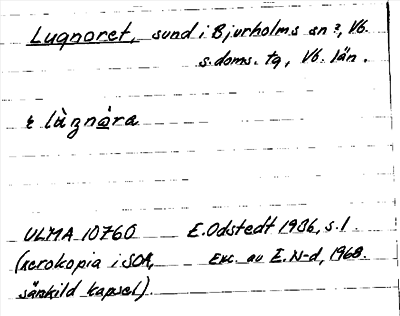 Lugnoret, sund i Bjurholms sn?, Vb.
s. doms. tg, Vb. län.
lùgnåra
ULMA 10760 E. Odstedt 1936, s. 1
(xerokopia i SOA, Exc. av E. N-d, 1968.
särskild kapsel).